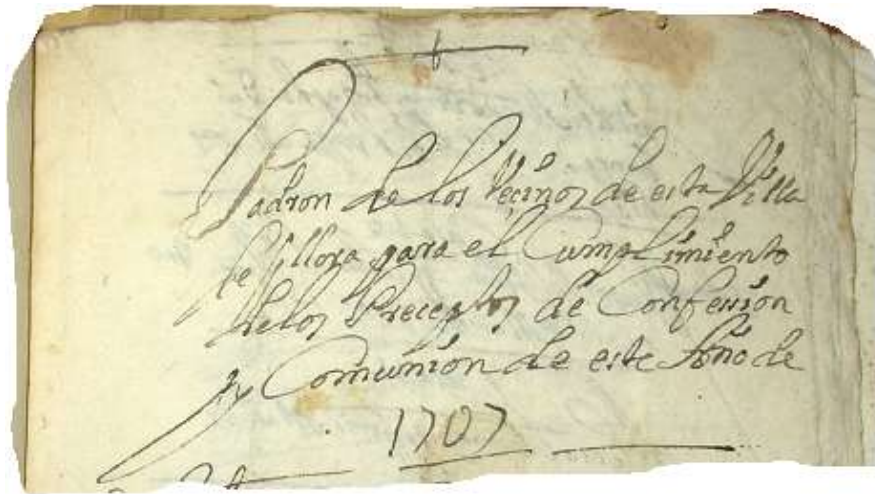 Padron de los Vecinos de esta Villa
de Yllora para el Cumplimiento
de los Preceptos de Confession
y Comunion de este Año de
1707